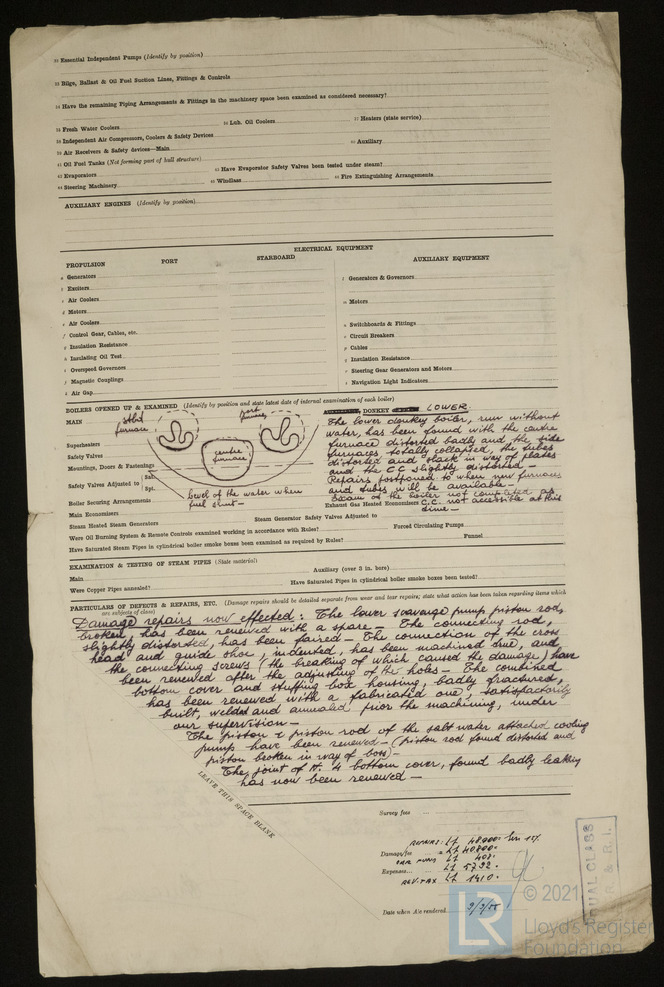 Essential Independent Pumps (Identify by position)
Bilge, Ballast & Oil Fuel Suction Lines, Fittings & Controls
Have the remaining Piping Arrangements & Fittings in the machinery space been examined as considered necessary?
Fresh Water Coolers Lub. Oil Coolers Heaters (state service)
Independent Air Compressors, Coolers & Safety Devices
Air Receivers & Safety devices—Main Auxiliary
Oil Fuel Tanks (Not forming part of hull structure)
Evaporators Have Evaporator Safety Valves been tested under steam?
Steering Machinery Windlass Fire Extinguishing Arrangements
AUXILIARY ENGINES (Identify by position)
ELECTRICAL EQUIPMENT
PROPULSION PORT STARBOARD AUXILIARY EQUIPMENT
Generators
Exciters
Air Coolers
Motors
Air Coolers
Control Gear, Cables, etc.
Insulation Resistance
Insulating Oil Test
Overspeed Governors
Magnetic Couplings
Air Gap
Generators & Governors
Motors
Switchboards & Fittings
Circuit Breakers
Cables
Insulation Resistance
Steering Gear Generators and Motors
Navigation Light Indicators
BOILERS OPENED UP & EXAMINED (Identify by position and state latest date of internal examination of each boiler)
MAIN
stbd furnace
port furnace
centre furnace
level of the water when
fuel shut—
Superheaters
Safety Valves
Mountings, Doors & Fastenings
Safety Valves Adjusted to Sat.
Spt.
Boiler Securing Arrangements
Main Economisers
Steam Heated Steam Generators
DONKEY LOWER
The lower donkey boiler, run without
water, has been found with the centre
furnace distorted badly and the side
furnaces totally collapsed, the tubes
distorted and slack in way of plates
and the CC slightly distorted—
Repairs postponed to when new furnaces
and tubes will be available—
Exam of the boiler not completed as
Exhaust Gas Heated Economisers C.C. not accessible at this
time—
Steam Generator Safety Valves Adjusted to
Were Oil Burning System & Remote Controls examined working in accordance with Rules? Forced Circulating Pumps
Have Saturated Steam Pipes in cylindrical boiler smoke boxes been examined as required by Rules? Funnel
EXAMINATION & TESTING OF STEAM PIPES (State material)
Main Auxiliary (over 3 in. bore)
Were Copper Pipes annealed? Have Saturated Pipes in cylindrical boiler smoke boxes been tested?
PARTICULARS OF DEFECTS & REPAIRS, ETC. (Damage repairs should be detailed separate from wear and tear repairs; state what action has been taken regarding items which
are subjects of class)
Damage repairs now effected: The lower scavenge pump piston rod,
broken, has been renewed with a spare— The connecting rod,
slightly distorted, has been faired— The connection of the cross
head and guide shoe, indented, has been machined true, and
the connecting screws (the breaking of which caused the damage) have
been renewed after the adjusting of the holes— The combined
bottom cover and stuffing box housing, badly fractured,
has been renewed with a fabricated one, satisfactorily
built, welded and annealed prior the machining, under
our supervision—
The piston & piston rod of the salt water attached cooling
pump have been renewed— (piston rod found distorted and
piston broken in way of boss)—
The joint of N. 4 bottom cover, found badly leaking
has now been renewed—
LEAVE THIS SPACE BLANK
Survey fees
Damage fee
Expenses
Date when A/c rendered
© 2021
LR
Lloyd's Register
Foundation